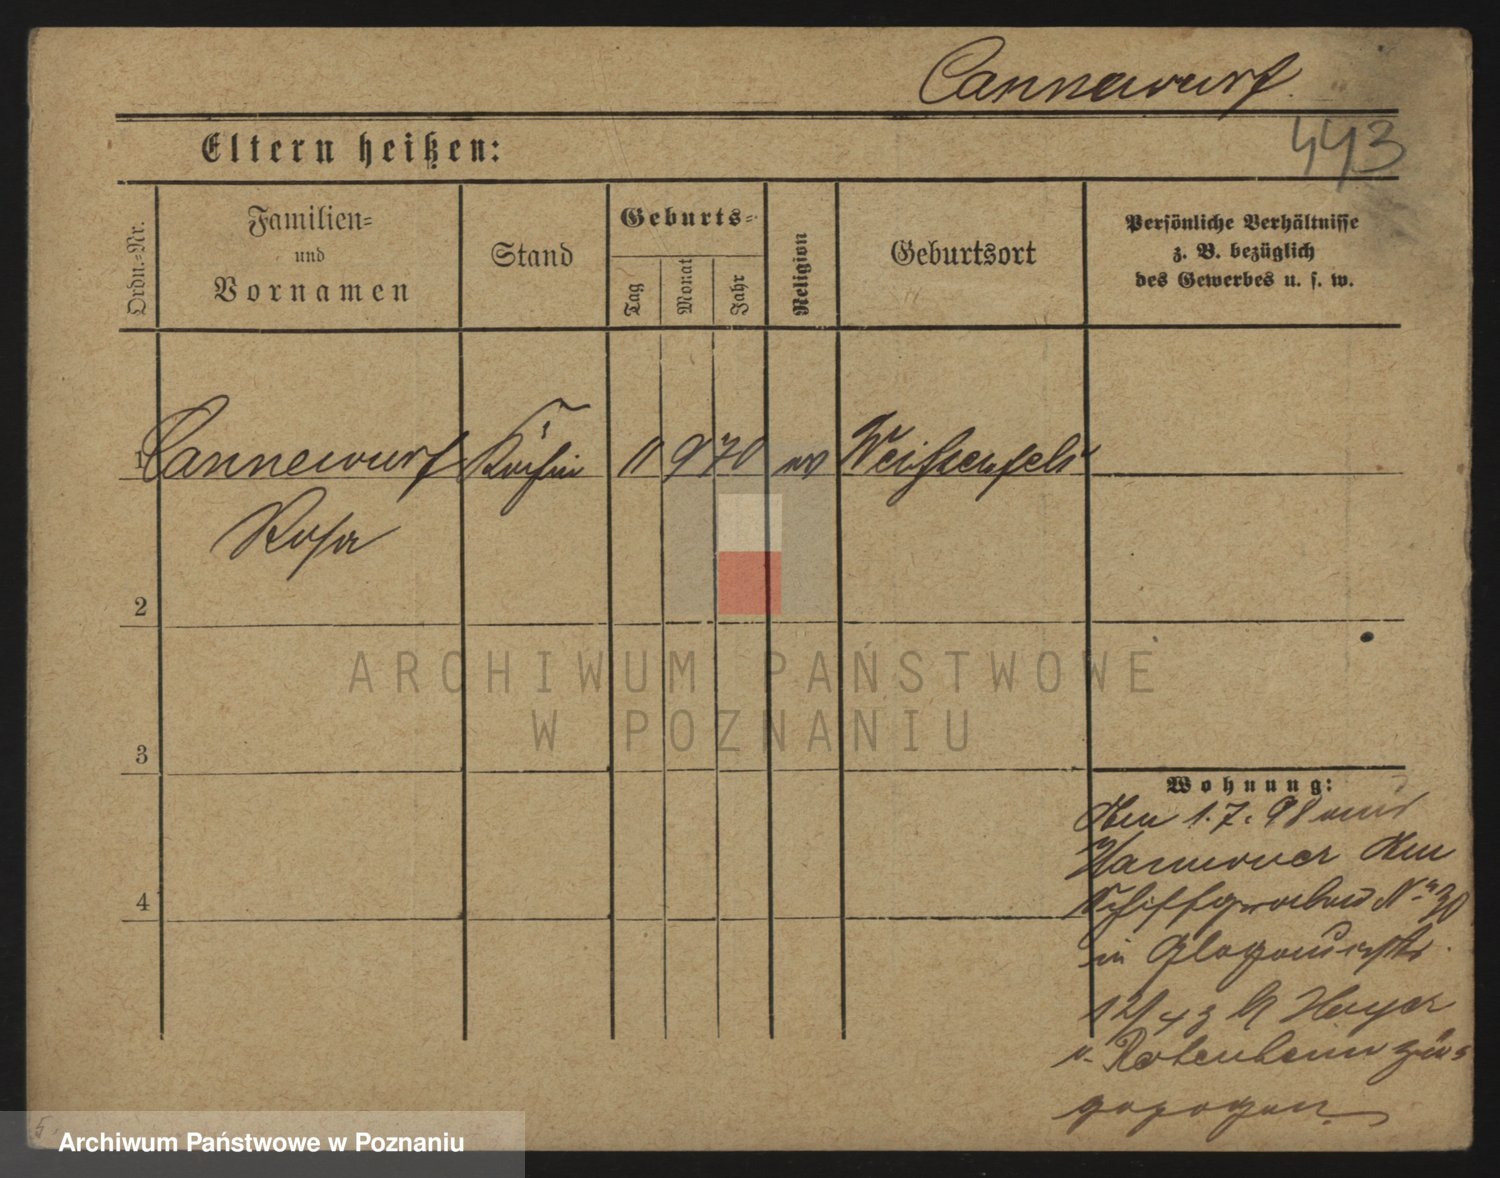 Cannewurf.
443
Eltern heißen:
Ordn.-Nr.
Familien-
und
Vornamen
Stand
Geburts-
Tag
Monat
Jahr
Religion
Geburtsort
Persönliche Verhältnisse
z. B. bezüglich
des Gewerbes u. s. w.
1 Cannewurf Köchin 11 9 70 ev Weißenfels
Rosa
2
3
4
Wohnung:
Den 1.7.98 aus
Hannover Am
Schiffgraben No 30
in Glogauerstr.
Hoyer
v. Rotenhan zu-
gezogen.
5.
ARCHIWUM PAŃSTWOWE
W POZNANIU
Archiwum Państwowe w Poznaniu